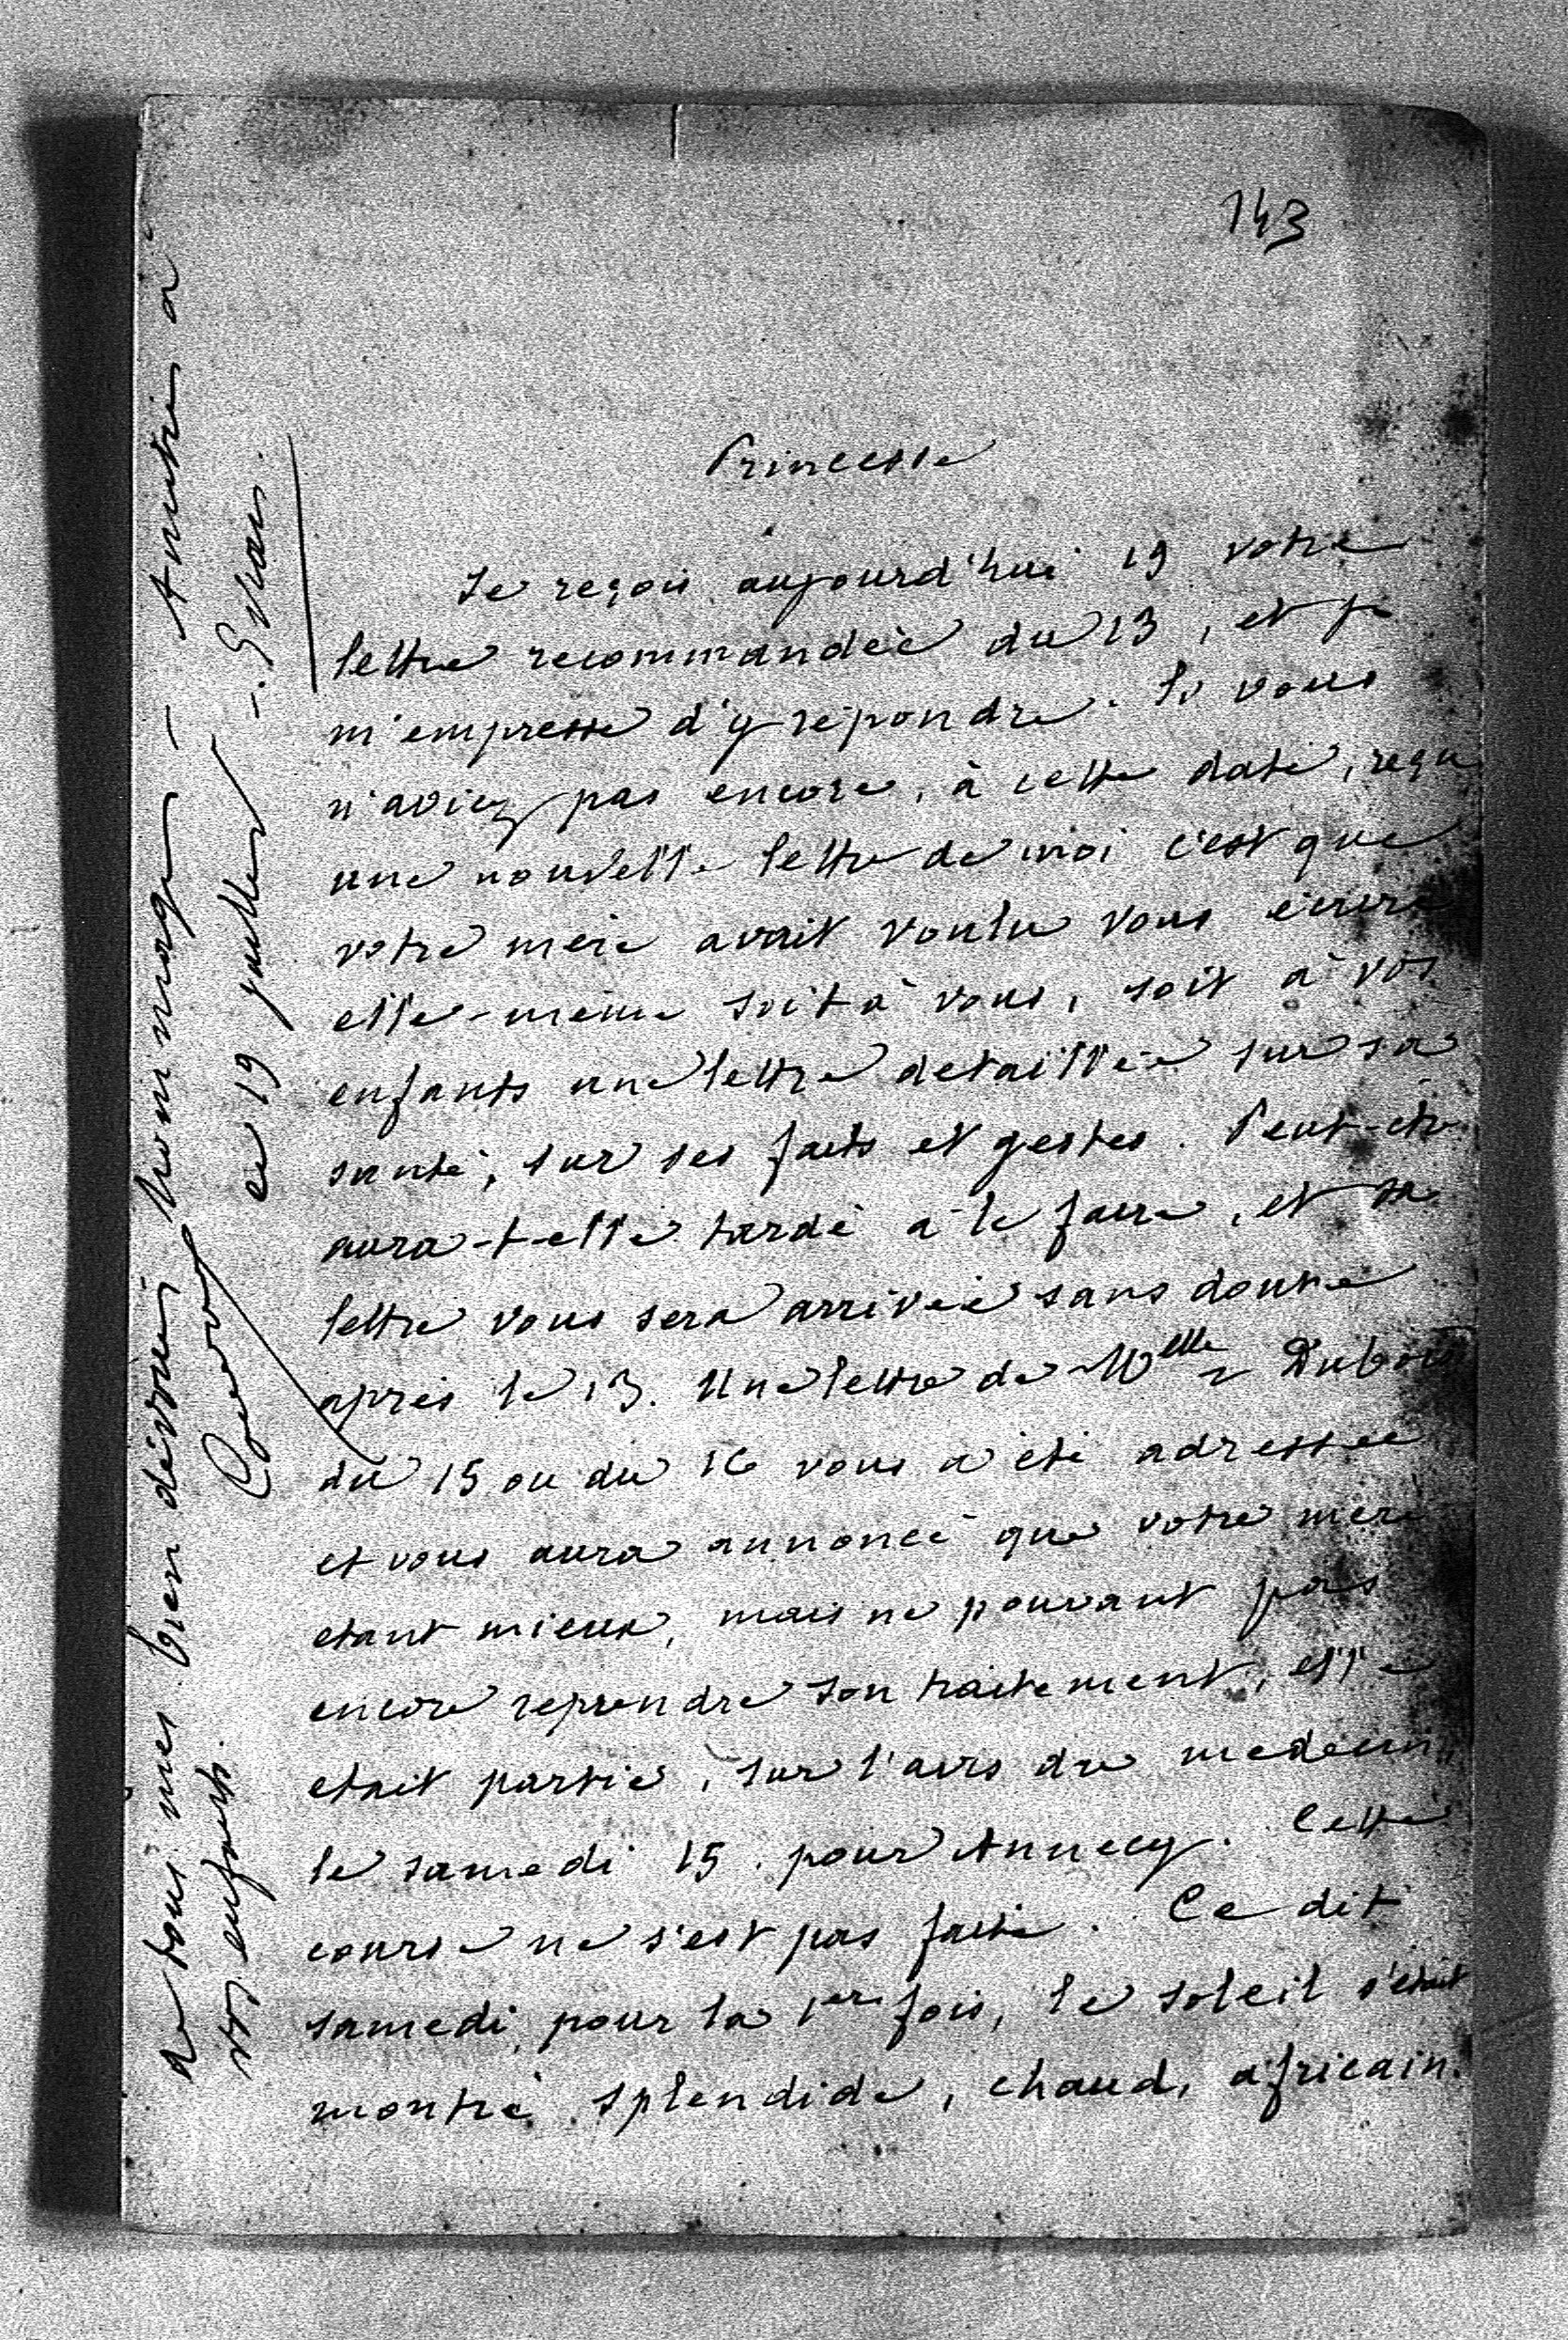 143
Princesse
Je reçois aujourd'hui 19 votre
lettre recommandée du 13, et je
m'empresse d'y répondre. Si vous
n'aviez pas encore, à cette date, reçu
une nouvelle lettre de moi c'est que
votre mère avait voulu vous écrire
elle-même soit à vous, soit à vos
enfants une lettre detaillée sur sa
santé, sur ses faits et gestes. Peut-etre
aura-t-elle tardé à le faire, et sa
lettre vous sera arrivée sans doute
après le 13. Une lettre de Melle Dubois
du 15 ou du 16 vous a été adressée
et vous aura annoncé que votre mère
etant mieux, mais ne pouvant pas
encore reprendre son traitement, elle
etait partie, sur l'avis du medecin,
le samedi 15 pour Annecy. Cette
course ne s'est pas faite. Ce dit
samedi, pour la 1ere fois, le soleil s'etait
montré splendide, chaud, africain.
à tous mes bien dévoués hommages — Amitiés à
vos enfants. ce 19 juillet — Evian.